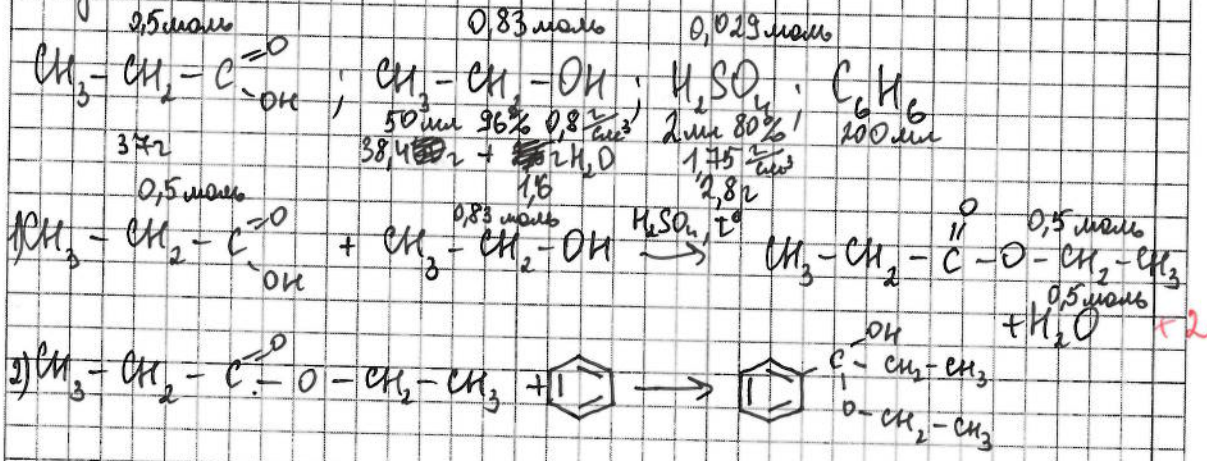 0,5 моль 0,83 моль 0,029 моль
CH₃ – CH₂ – C =O –OH ; CH₃ – CH₂ – OH ; H₂SO₄ ; C₆H₆
50 мл 96% 0,8 г/см³ 2 мл 80% 200 мл
37г 38,4 г + г H₂O 1,75 г/см³
1,6 2,8г
0,5 моль 0,83 моль 0,5 моль
1) CH₃ – CH₂ – C =O –OH + CH₃ – CH₂ – OH H₂SO₄, t° → CH₃ – CH₂ – C =O – O – CH₂ – CH₃
0,5 моль
+ H₂O + 2
2) CH₃ – CH₂ – C =O – O – CH₂ – CH₃ + → C – OH – CH₂ – CH₃
O – CH₂ – CH₃